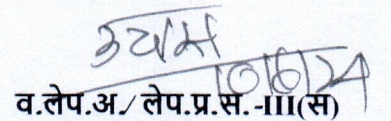 10/6/24
व.लेप.अ./ लेप.प्र.स.-III(स)